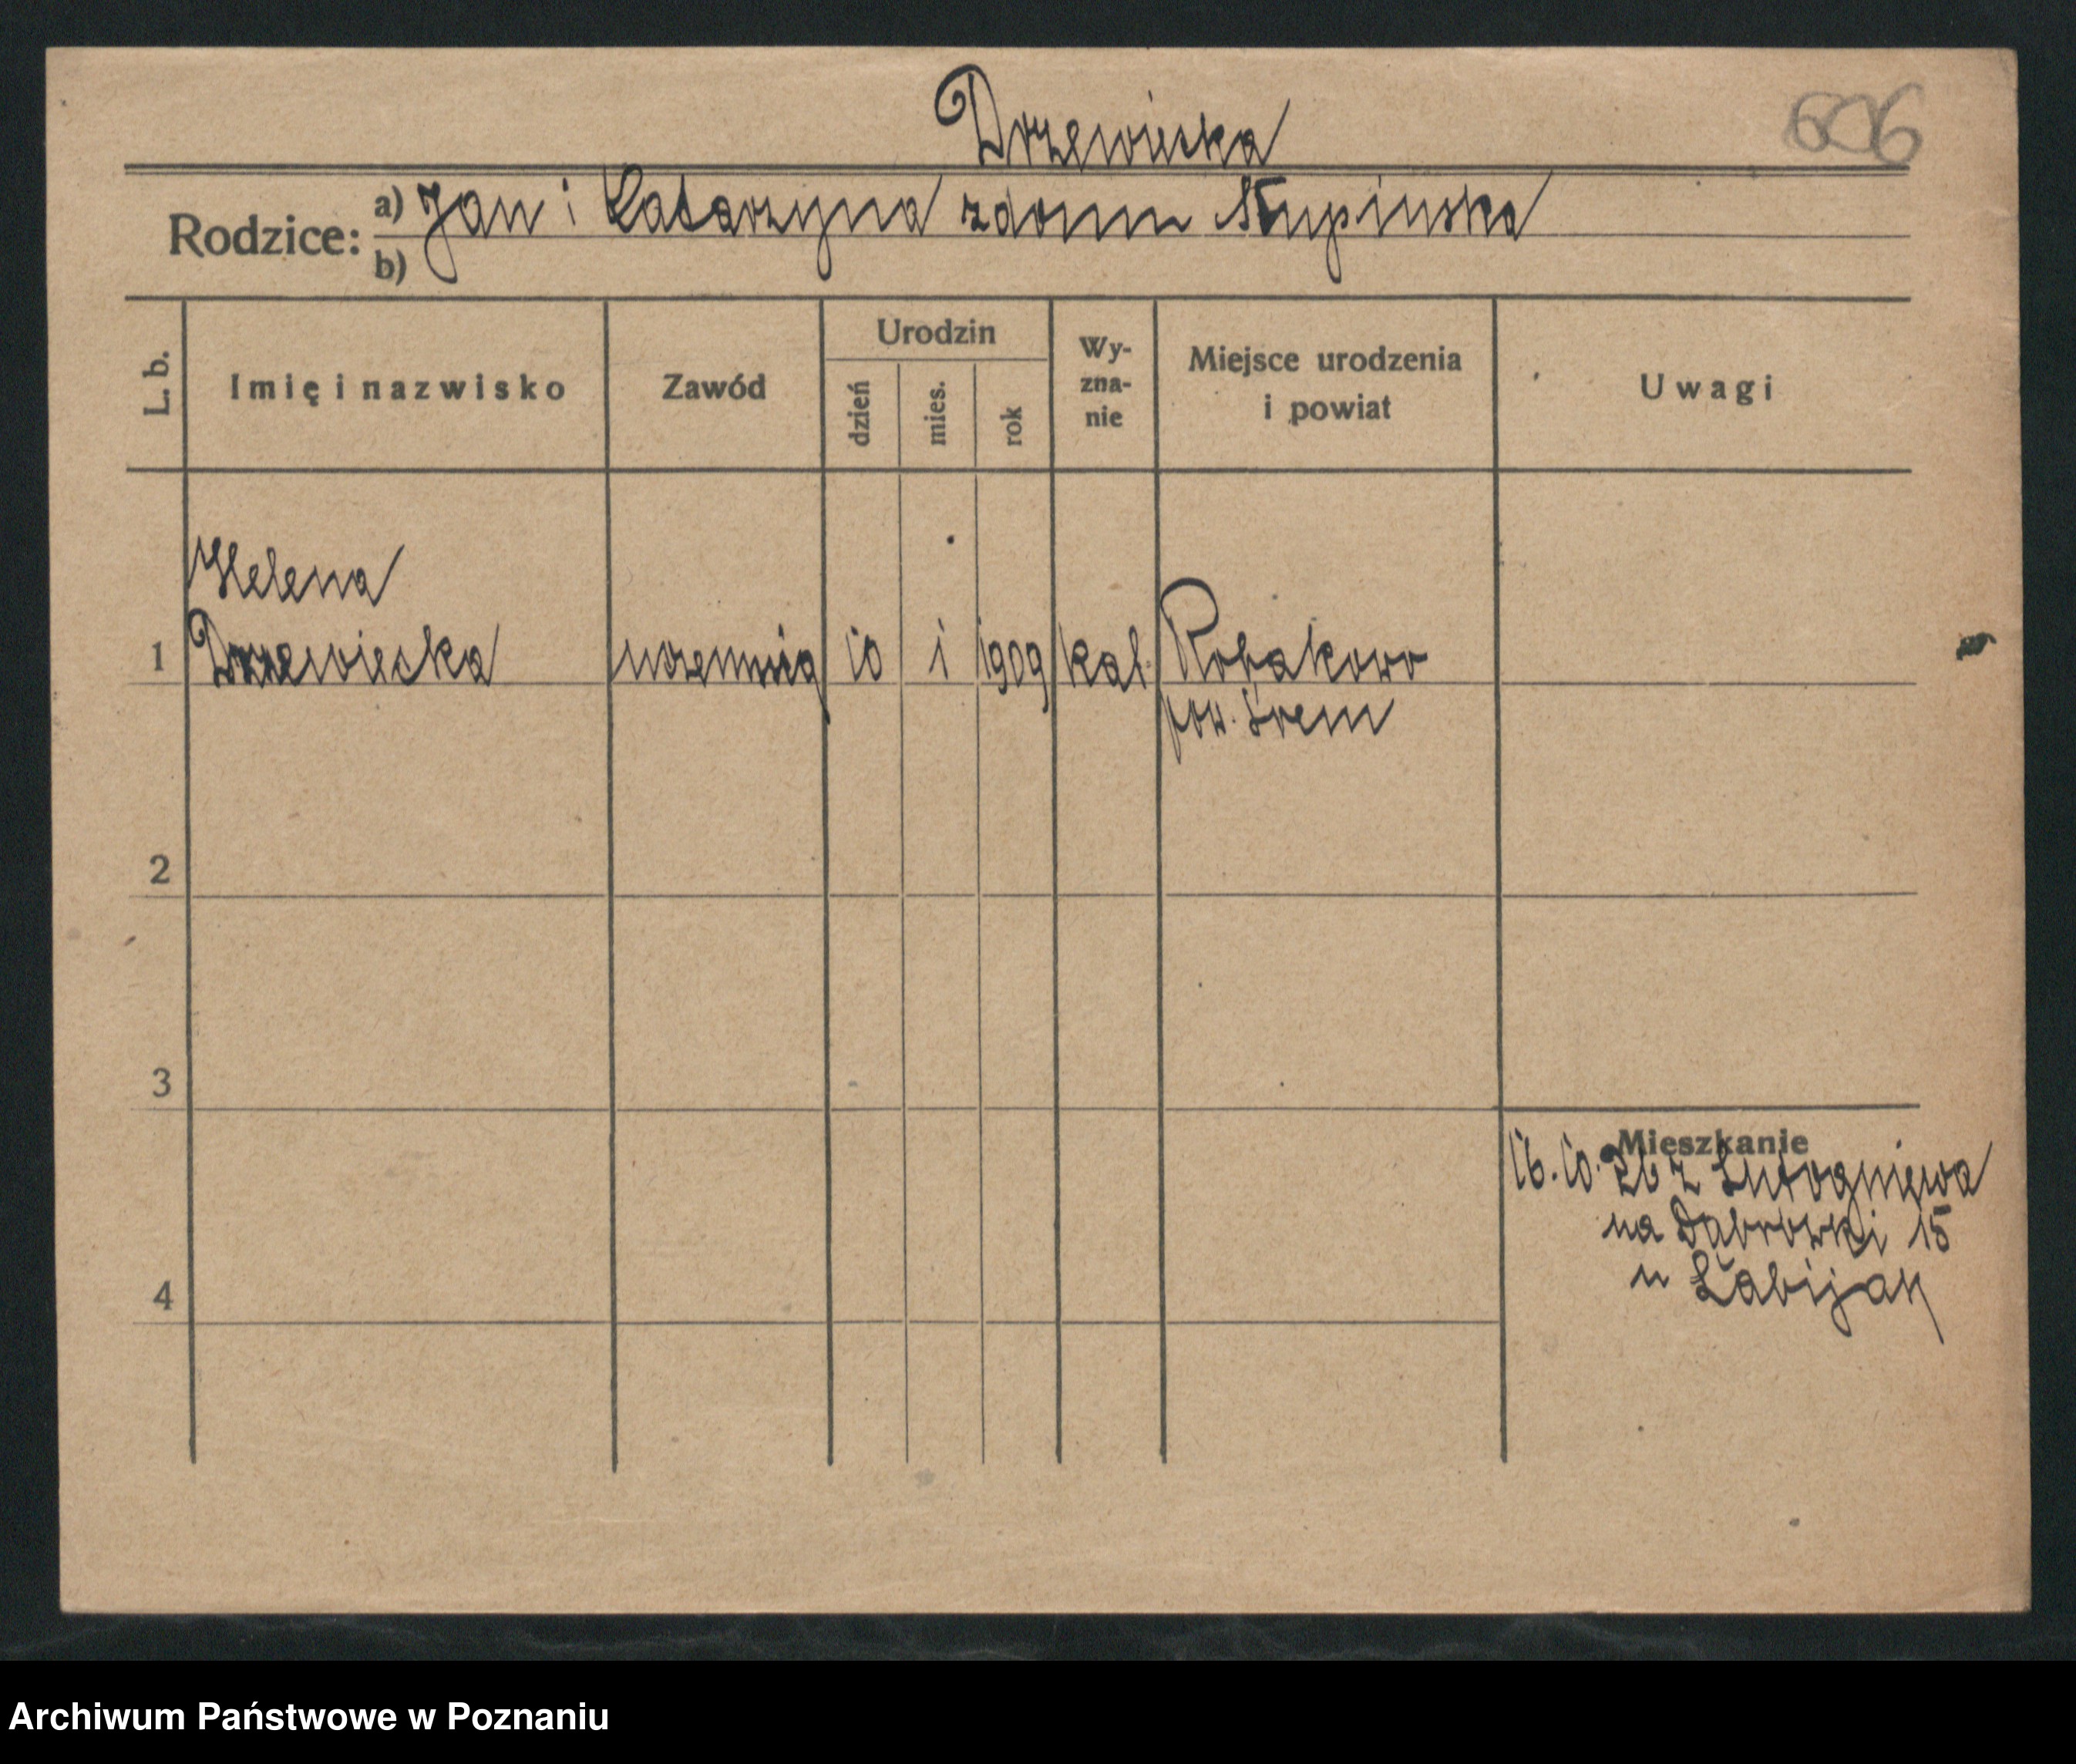 Drzewiecka
606
Rodzice: a) Jan i Katarzyna z domu Słupińska
b)
L. b. Imię i nazwisko Zawód Urodzin dzień mies. rok Wy-zna-nie Miejsce urodzenia i powiat Uwagi
Helena
1 Drzewiecka uczennica 10 1 1909 kat. Robakowo
pow. Śrem
2
3
Mieszkanie
16.10. 26 z Lutogniewa
na Dąbrówki 15
u Łabijak
4
Archiwum Państwowe w Poznaniu